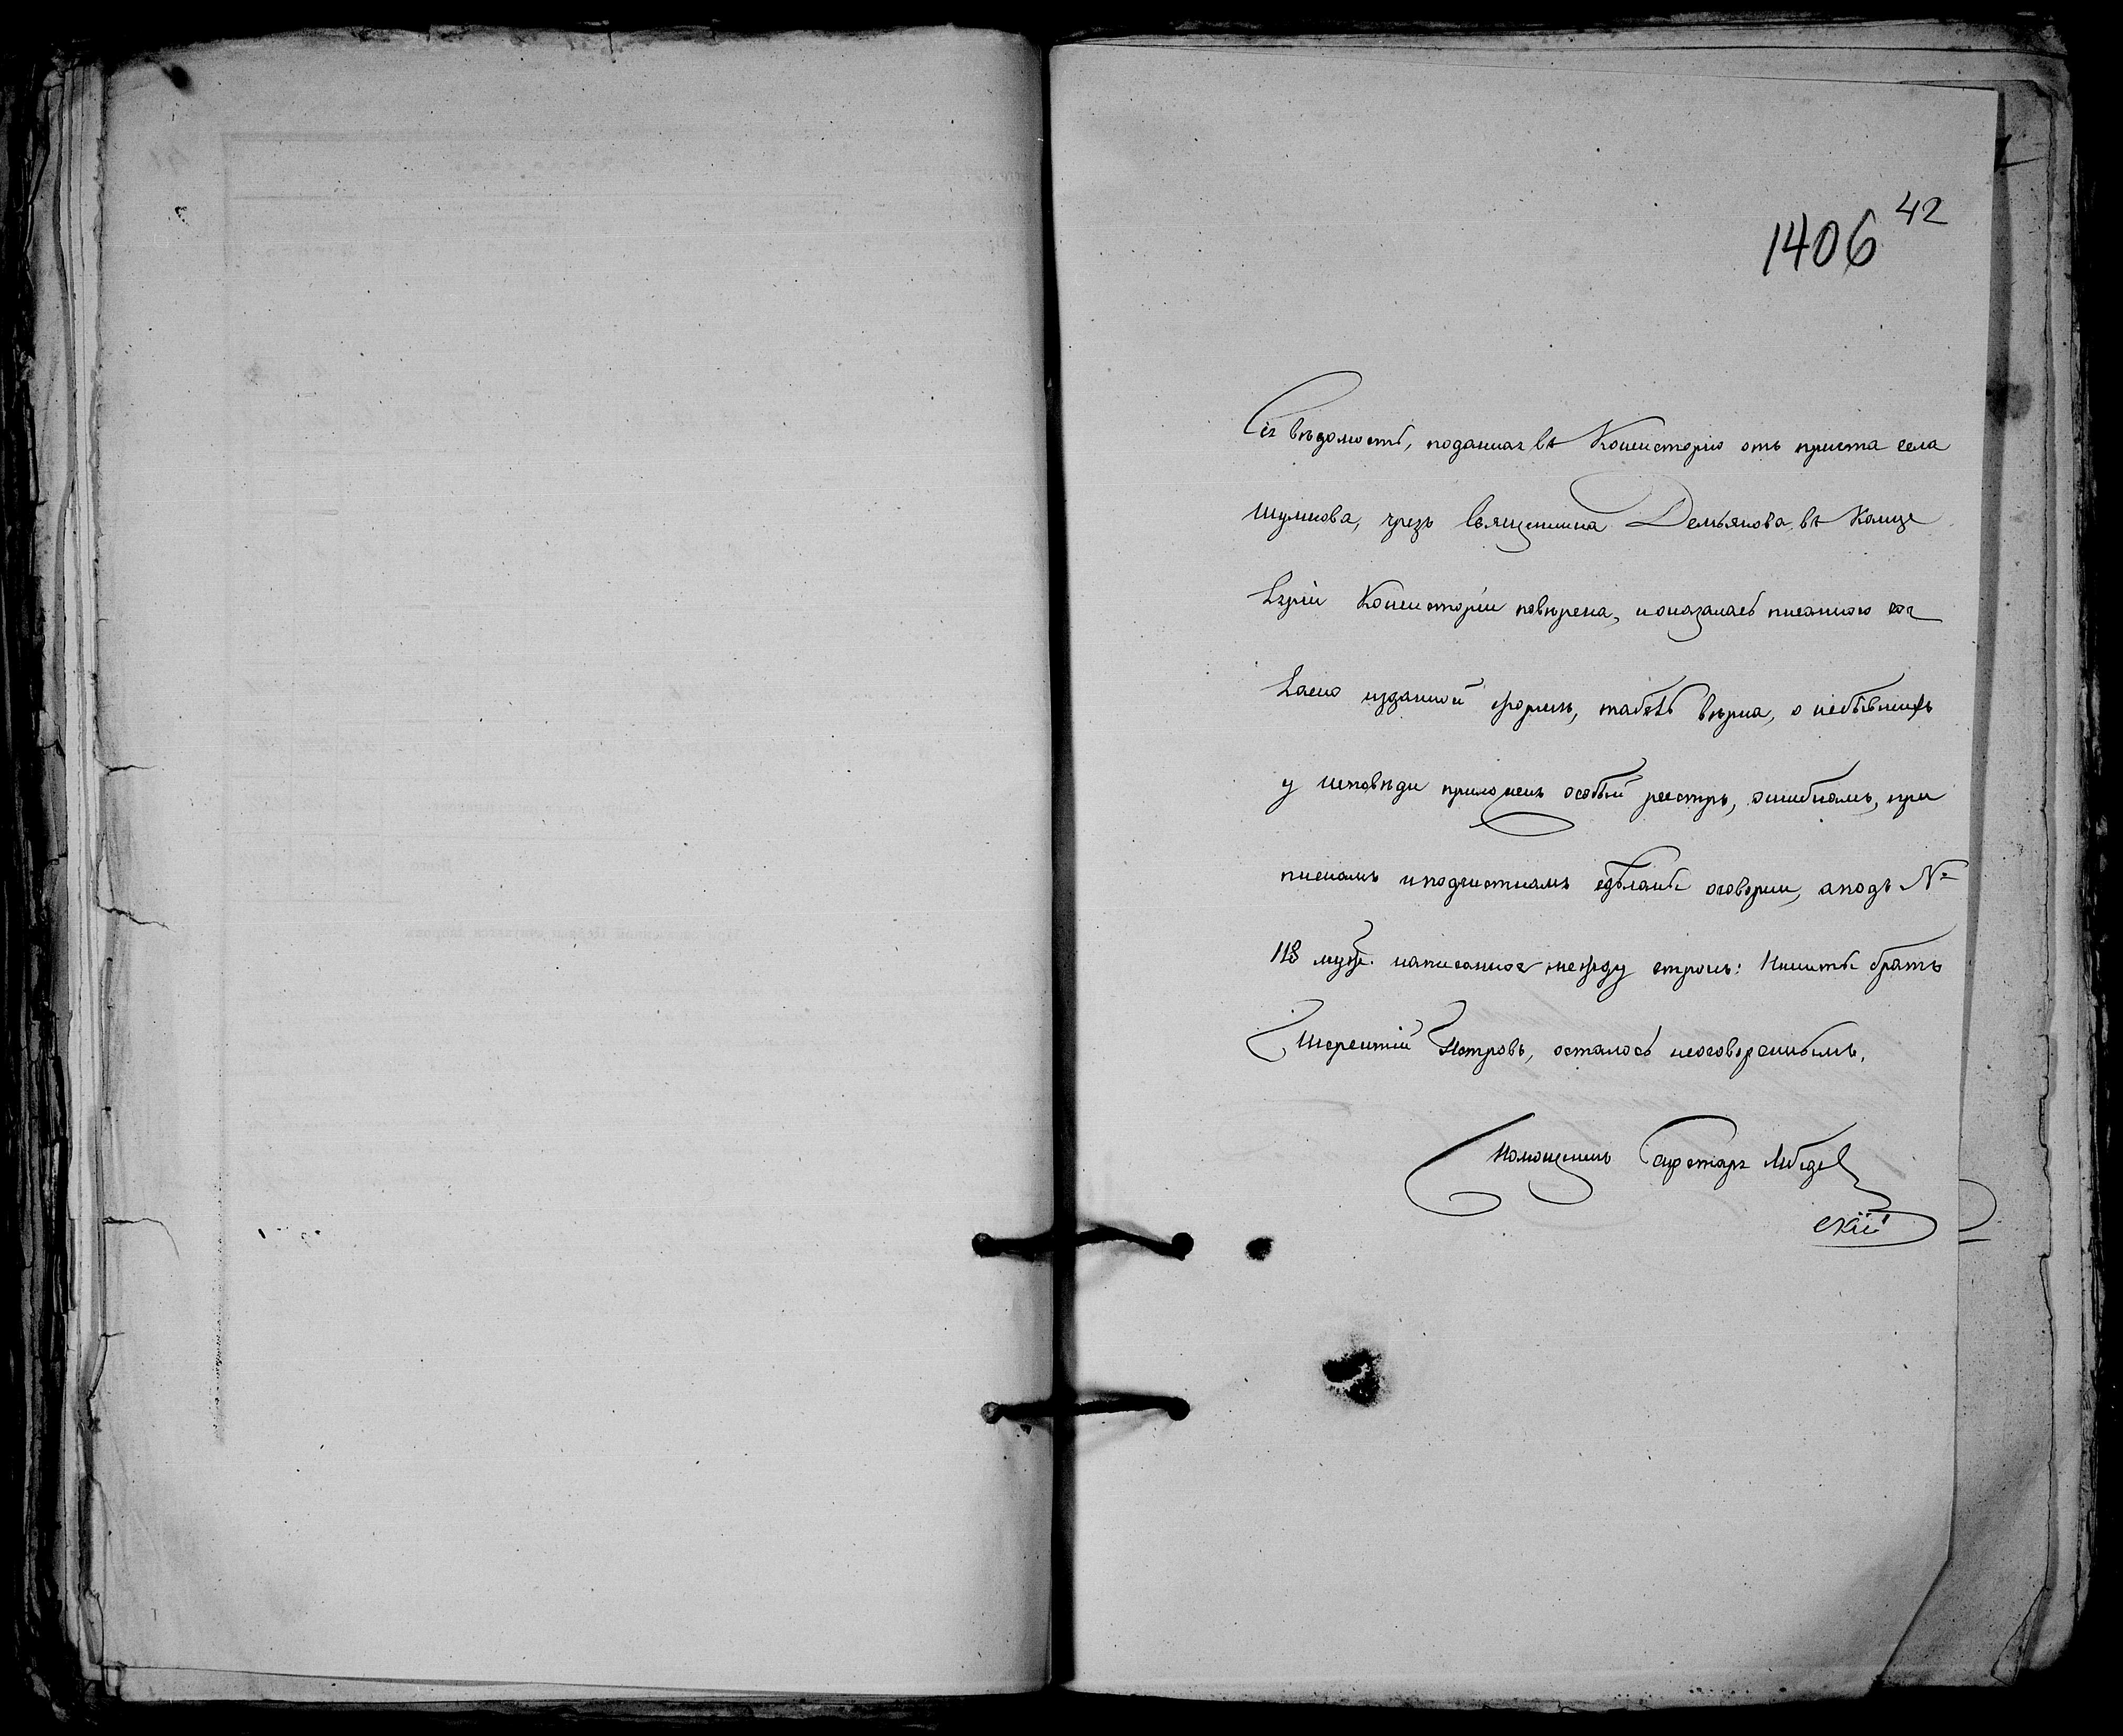 42
1406
Сія вѣдомость, поданная въ Консисторію отъ причта села
Шумкова, чрезъ Священника Демьянова, въ Канце
ляріи Консисторіи повѣрена, и оказалась писанною со
гласно изданной формѣ, табель вѣрна, о небывшихъ
у исповѣди приложенъ особый реестръ, ошибкамъ, при
пискамъ и подчисткамъ сдѣланы оговорки, а подъ №
118 муж. написанное между строкъ: Никиты братъ
Терентій Петровъ, осталось неоговореннымъ.
Помощникъ Секретаря
скій